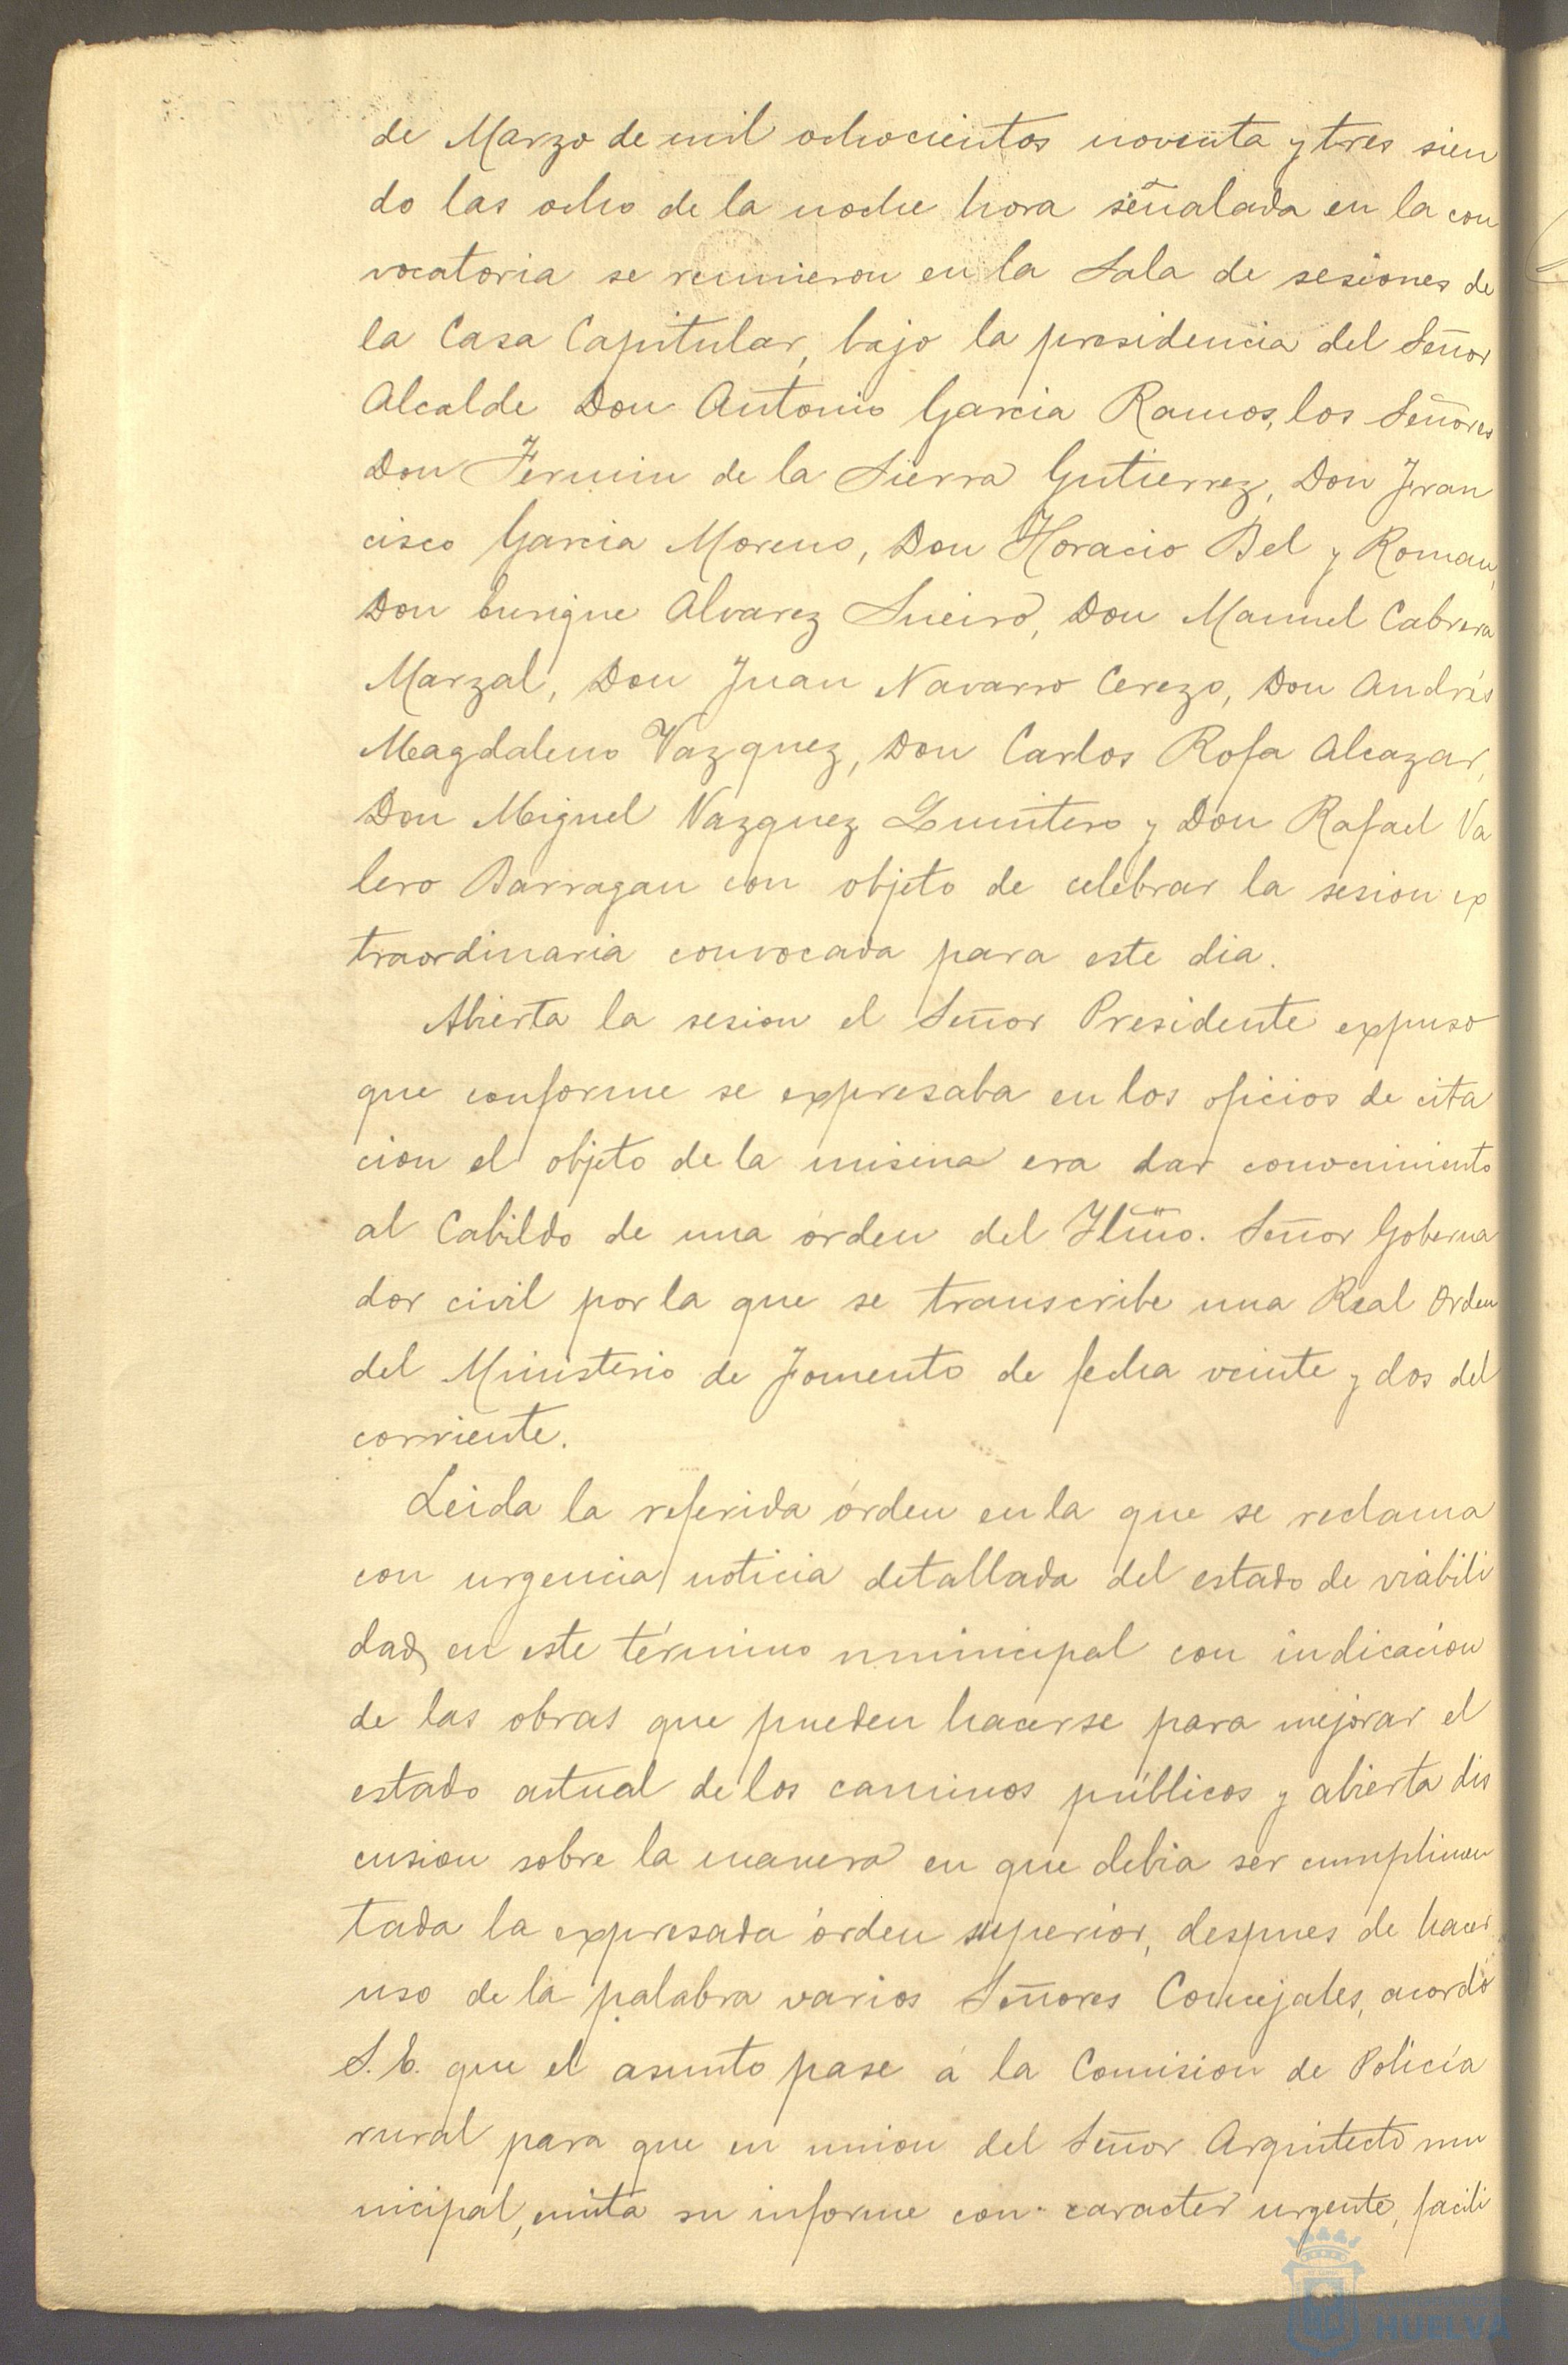 de Marzo de mil ochocientos noventa y tres sien
do las ocho de la noche hora señalada en la con
vocatoria se reunieron en la Sala de sesiones de
la Casa Capitular, bajo la presidencia del Señor
Alcalde Don Antonio Garcia Ramos, los Señores
Don Fermin de la Sierra Gutierrez, Don Fran
cisco Garcia Moreno, Don Horacio Bel y Roman,
Don Enrique Alvarez Sueiro, Don Manuel Cabrera
Marzal, Don Juan Navarro Cerezo, Don Andrés
Magdaleno Vazquez, Don Carlos Rofa Alcazar,
Don Miguel Vazquez Quintero y Don Rafael Va
lero Barragan con objeto de celebrar la sesion ex
traordinaria convocada para este dia.
Abierta la sesion el Señor Presidente expuso
que conforme se expresaba en los oficios de cita
cion el objeto de la misma era dar conocimiento
al Cabildo de una órden del Iltmo. Señor Goberna
dor civil por la que se transcribe una Real Orden
del Ministerio de Fomento de fecha veinte y dos del
corriente.
Leida la referida órden en la que se reclama
con urgencia noticia detallada del estado de viabili
dad, en este término municipal con indicacion
de las obras que pueden hacerse para mejorar el
estado actual de los caminos públicos y abierta dis
cusion sobre la manera en que debia ser cumplimen
tada la expresada órden superior, despues de hacer
uso de la palabra varios Señores Concejales, acordó
S. E. que el asunto pase á la Comision de Policía
rural para que en union del Señor Arquitecto mu
nicipal, emita su informe con caracter urgente, facili
HUELVA